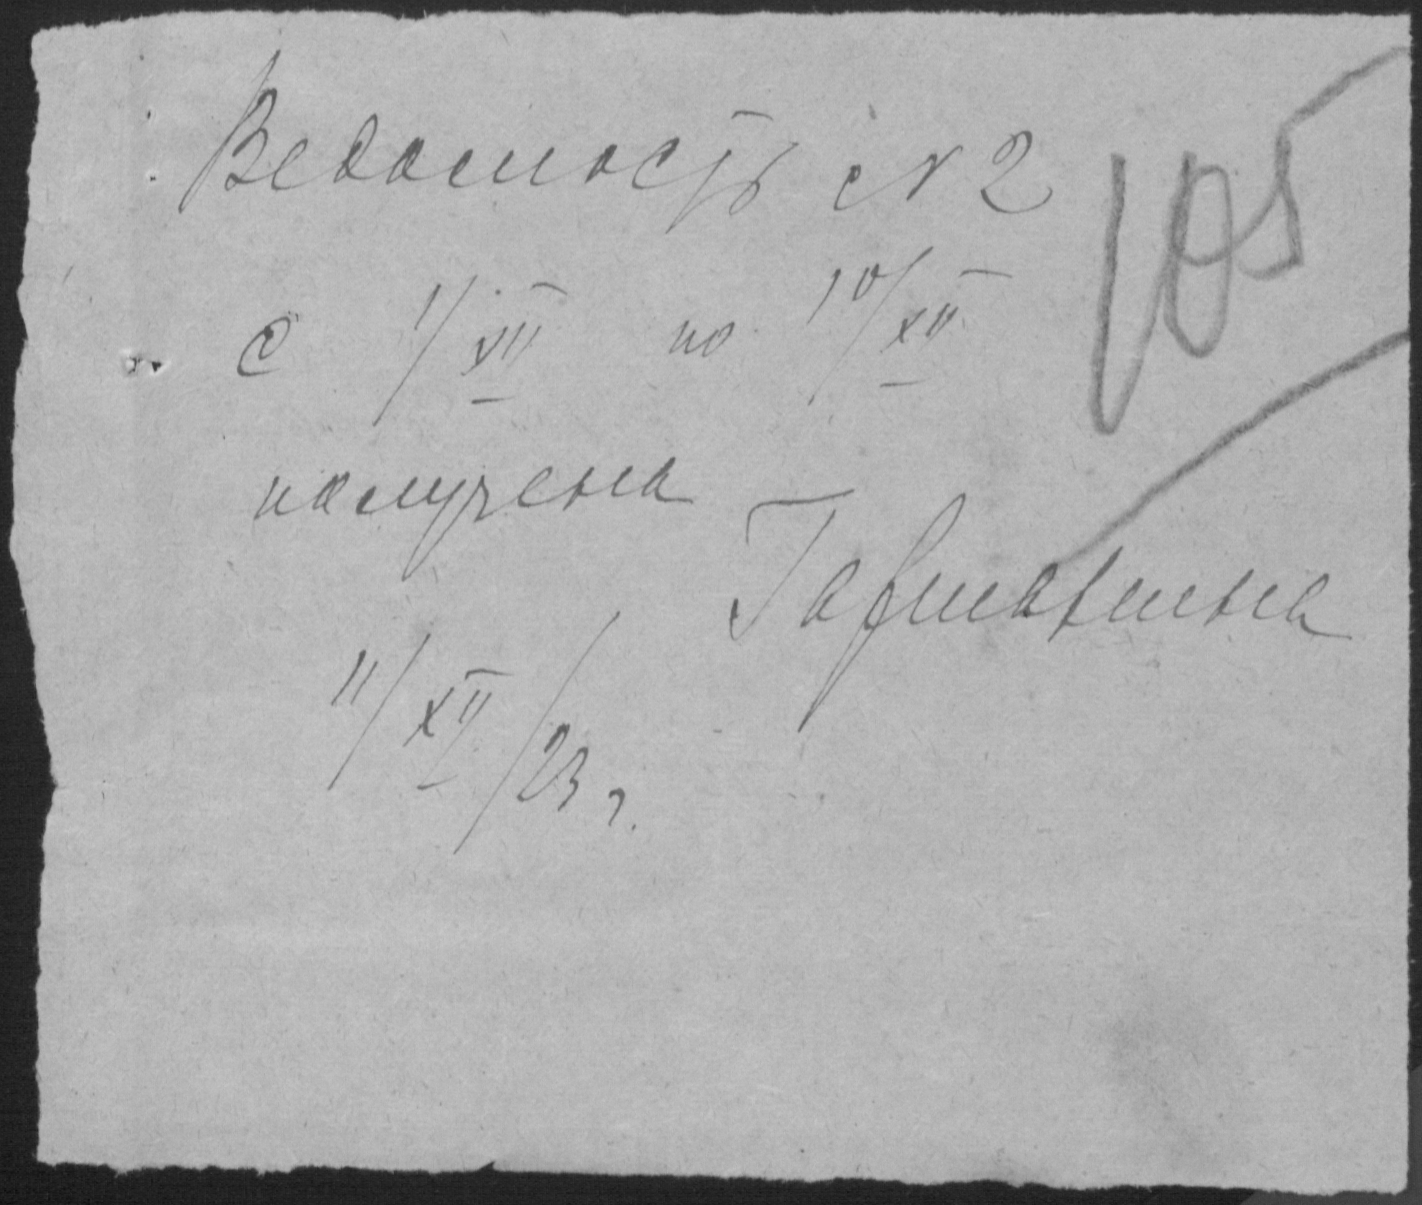 Ведомость № 2
105
с 1/XII по 10/XII
получена
11/XII/23 г.